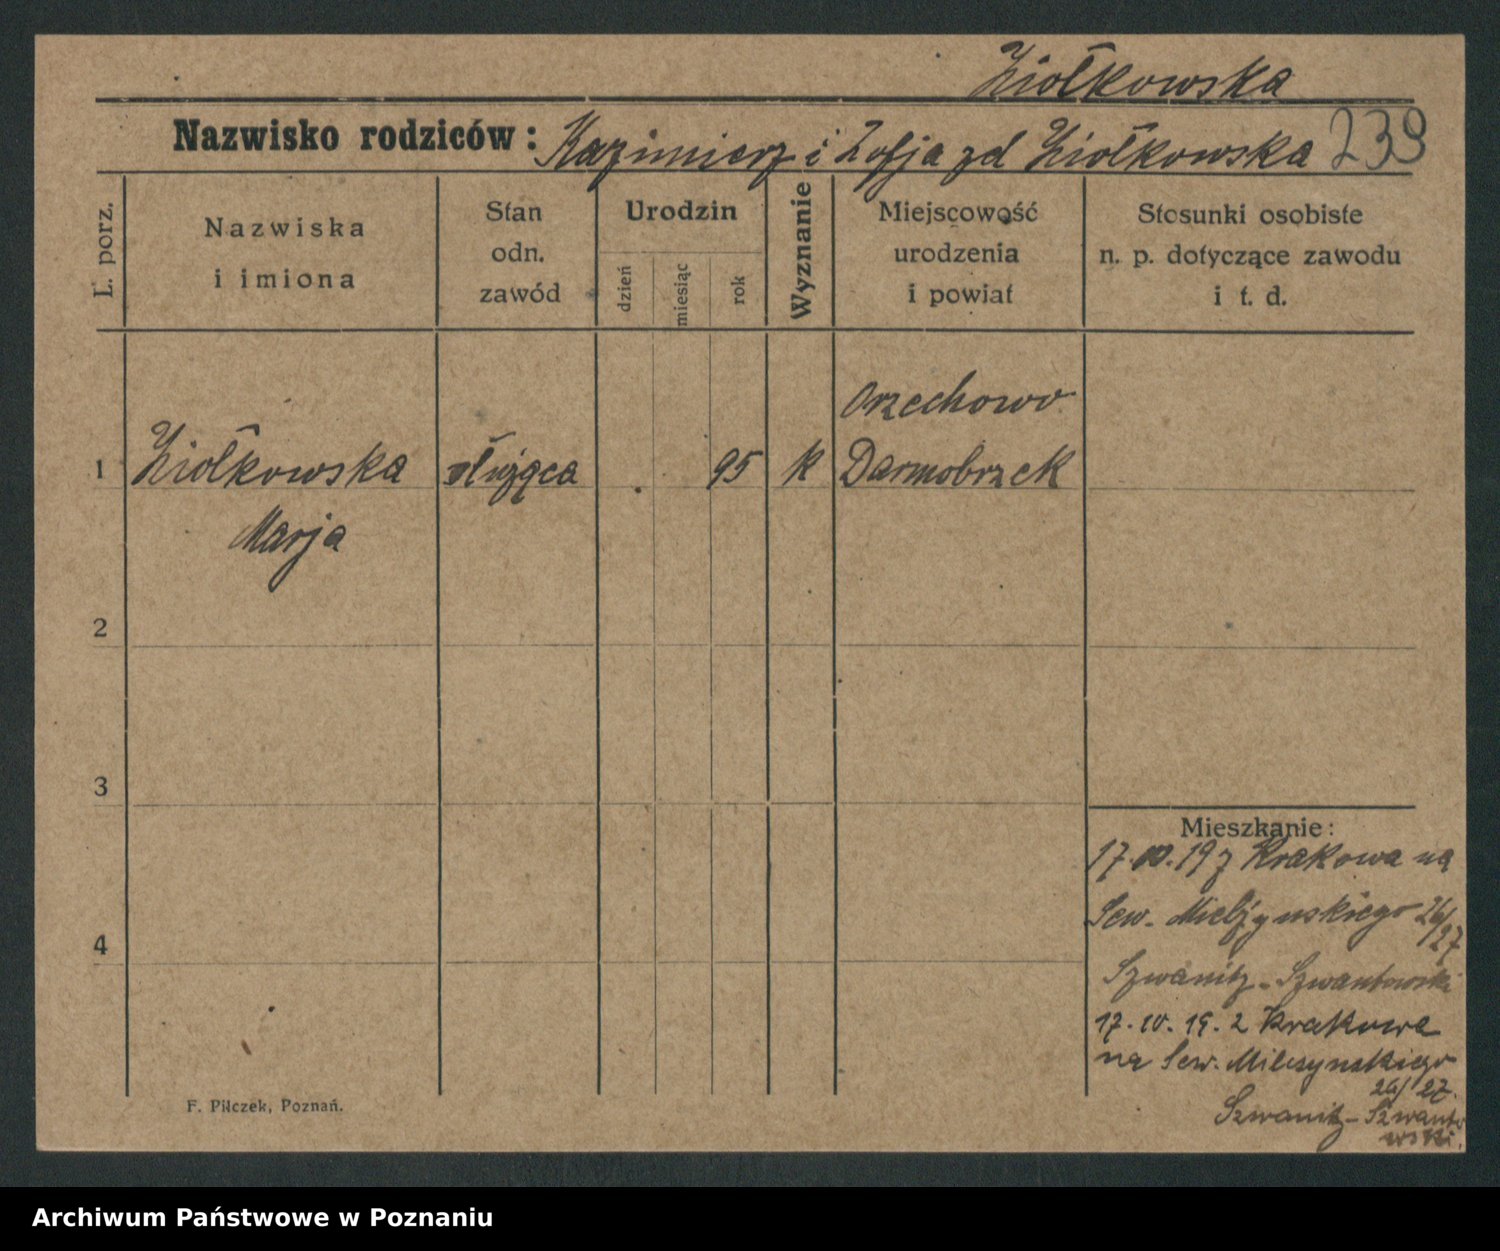 Ziołkowska
Nazwisko rodziców: Kazimierz i Zofja zd Ziołkowska 239
L. porz.
Nazwiska
i imiona
Stan
odn.
zawód
Urodzin
dzień
miesiąc
rok
Wyznanie
Miejscowość
urodzenia
i powiat
Stosunki osobiste
n. p. dotyczące zawodu
i t. d.
Orzechowo
1 Ziołkowska służąca 95 k Darmobrzek
Marja
2
3
4
Mieszkanie:
17.10.19 z Krakowa na
Sew. Mielżynskiego 26/27
Szwanitz - Szwantowski
17.10.19. z Krakowa
na Sew. Milczynskiego
26/27.
Szwanitz - Szwanto
wski.
F. Pilczek, Poznań.
Archiwum Państwowe w Poznaniu